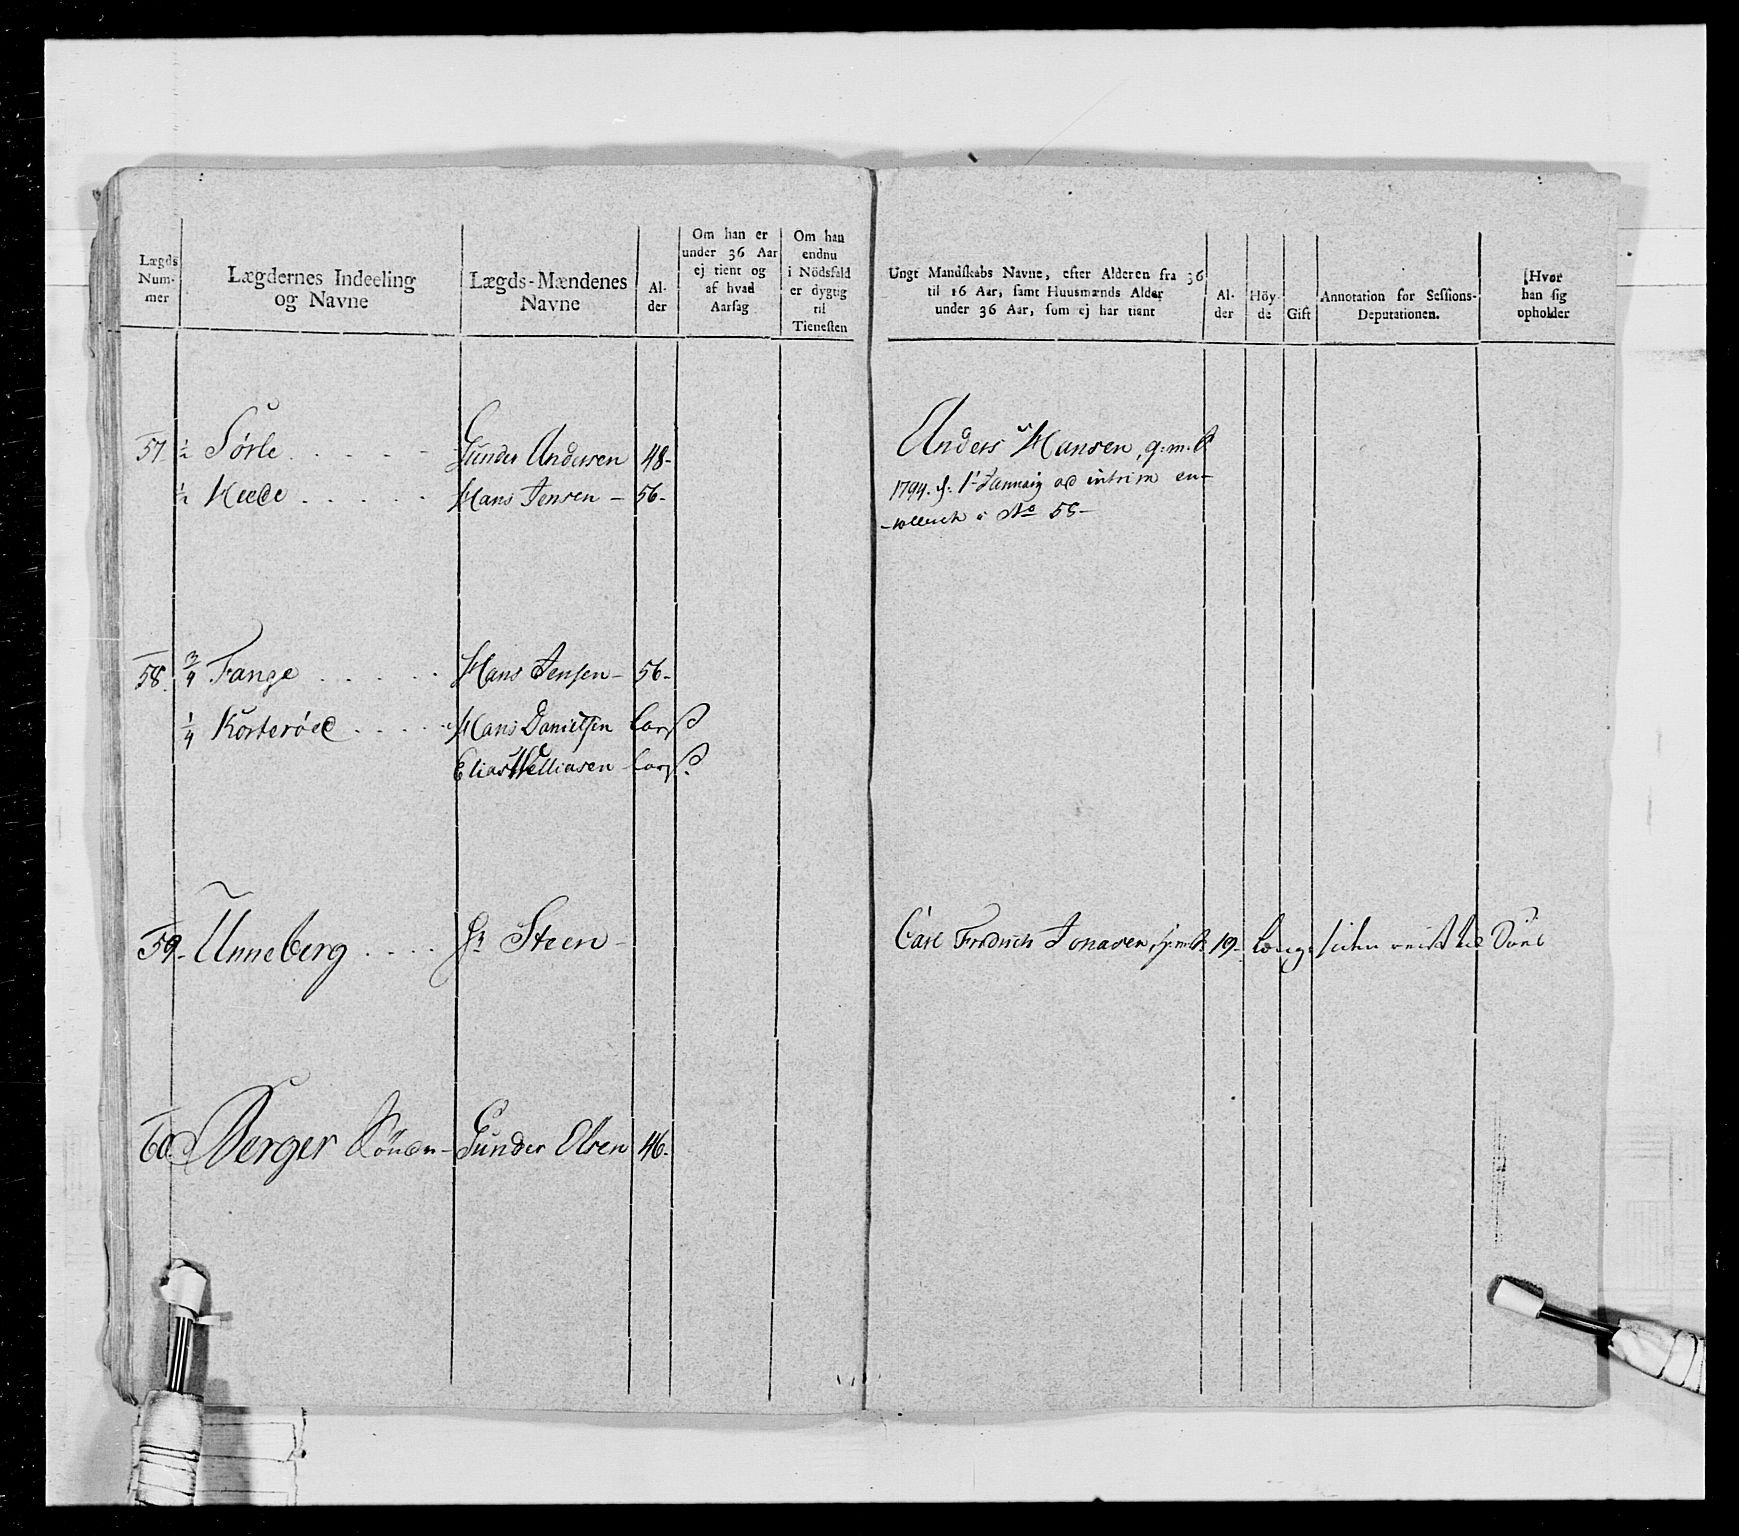 Lægds Num- mer
Lægdernes Indeeling og Navne
Lægds-Mændenes Navne
Al- der
Om han er under 36 Aar ej tient og af hvad Aarsag
Om han endnu i Nödsfald er dygtig til Tienesten
Ungt Mandskabs Navne, efter Alderen fra 36 til 16 Aar, samt Huusmænds Alder under 36 Aar, som ej har tient
Al- der
Höy- de
Gift
Annotation for Sessions- Deputationen.
Hvor han sig opholder
57 ½ Sørle . . . . . Gunder Andersen 48-
½ Heede . . . . . Hans Jensen - 56-
Anders Hansen, g.m.
1794. d. 1 Januarij ad intrim en-
-rolleret i No 55-
58. ¾ Fange . . . . . Hans Jensen - 56-
¼ Korterøed . . . . . Hans Danielsen
Elias
59- Unneberg . . . . Hr Steen -
Carl Fredrich Jonasen, 19- længe siden reist til
60. Berger Søndre - Gunder Olsen 46-